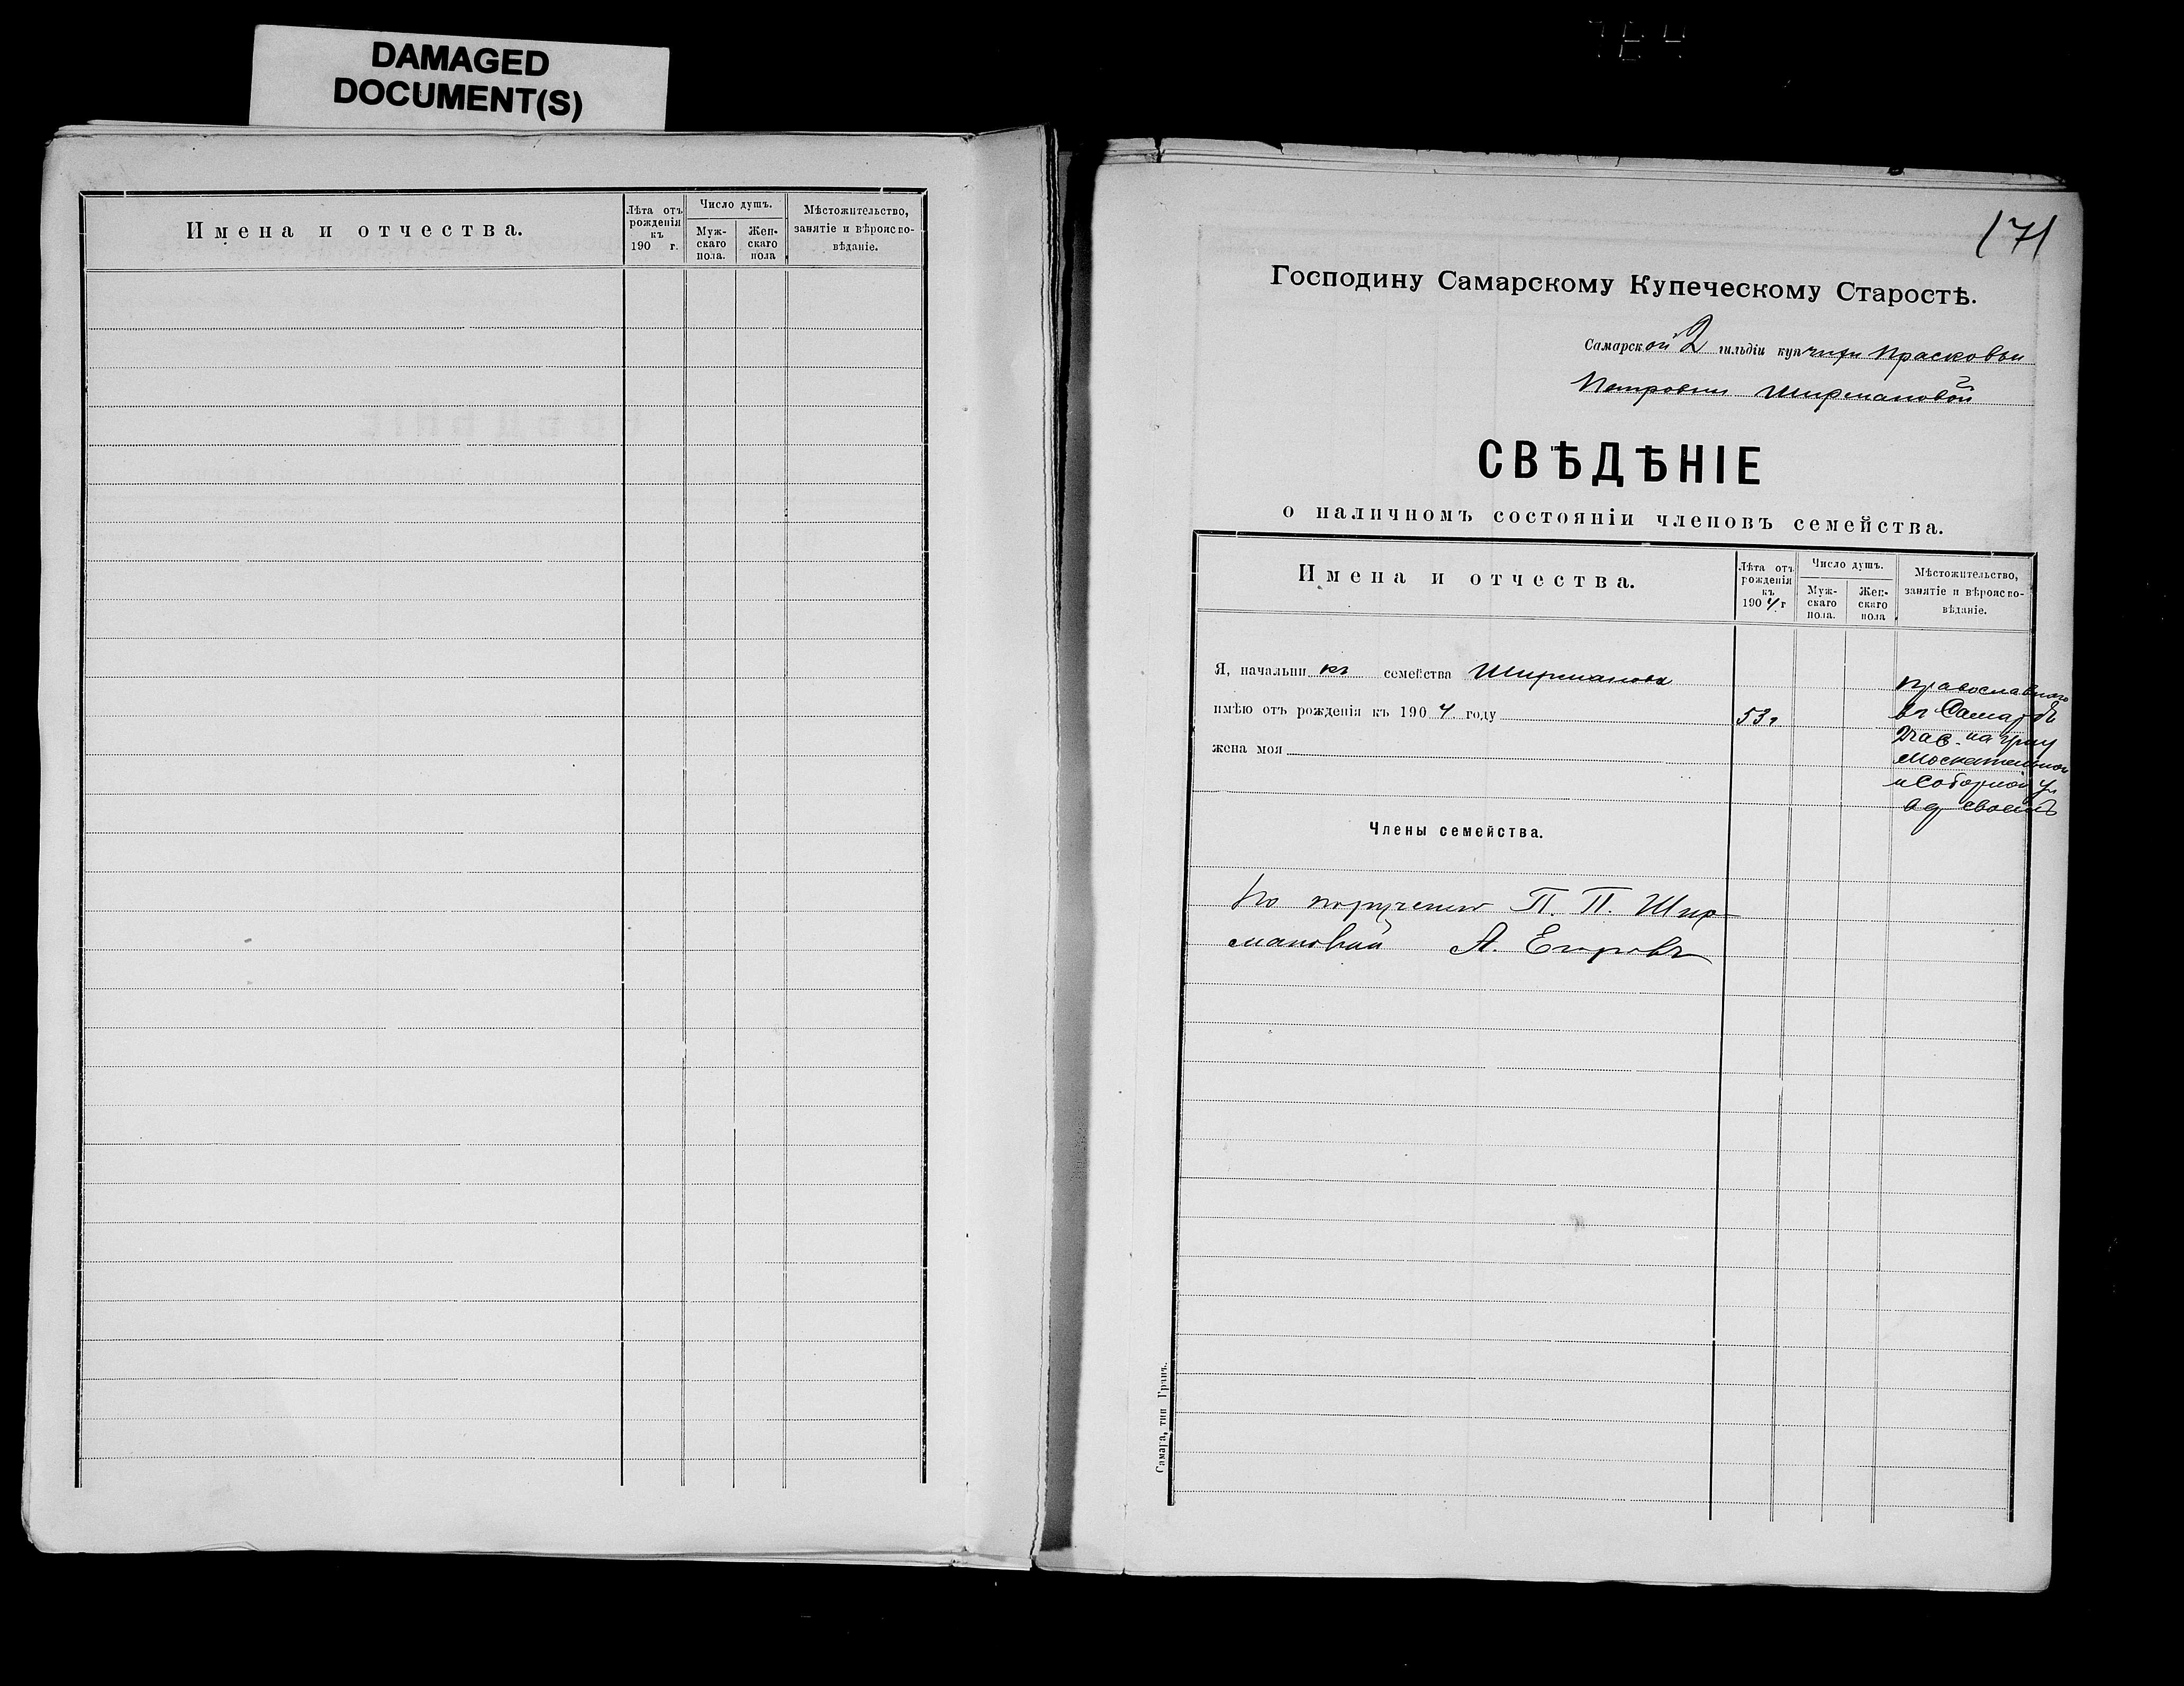 DAMAGED
DOCUMENT(S)
Имена и отчества.
Лѣта отъ рожденія къ 190 г.
Число душъ.
Мужскаго пола.
Женскаго пола
Мѣстожительство, занятіе и вѣроисповѣданіе.
171
Господину Самарскому Купеческому Старостѣ.
Самарской 2 гильдіи купчихи Прасковьи
Петровны Ширмановой
СВѢДѢНІЕ
о наличномъ состояніи членовъ семейства.
Имена и отчества.
Лѣта отъ рожденія къ 1904 г
Число душъ.
Мужскаго пола.
Женскаго пола
Мѣстожительство, занятіе и вѣроисповѣданіе.
Я, начальникъ семейства Ширманова
имѣю отъ рожденія къ 1904 году 53
жена моя
православнаго
въ Самарѣ
на углу
Москательной
и Соборной ул
своемъ
Члены семейства.
По порученію П. П. Шир-
мановой А. Егоровъ
Самара, тип Гранъ.